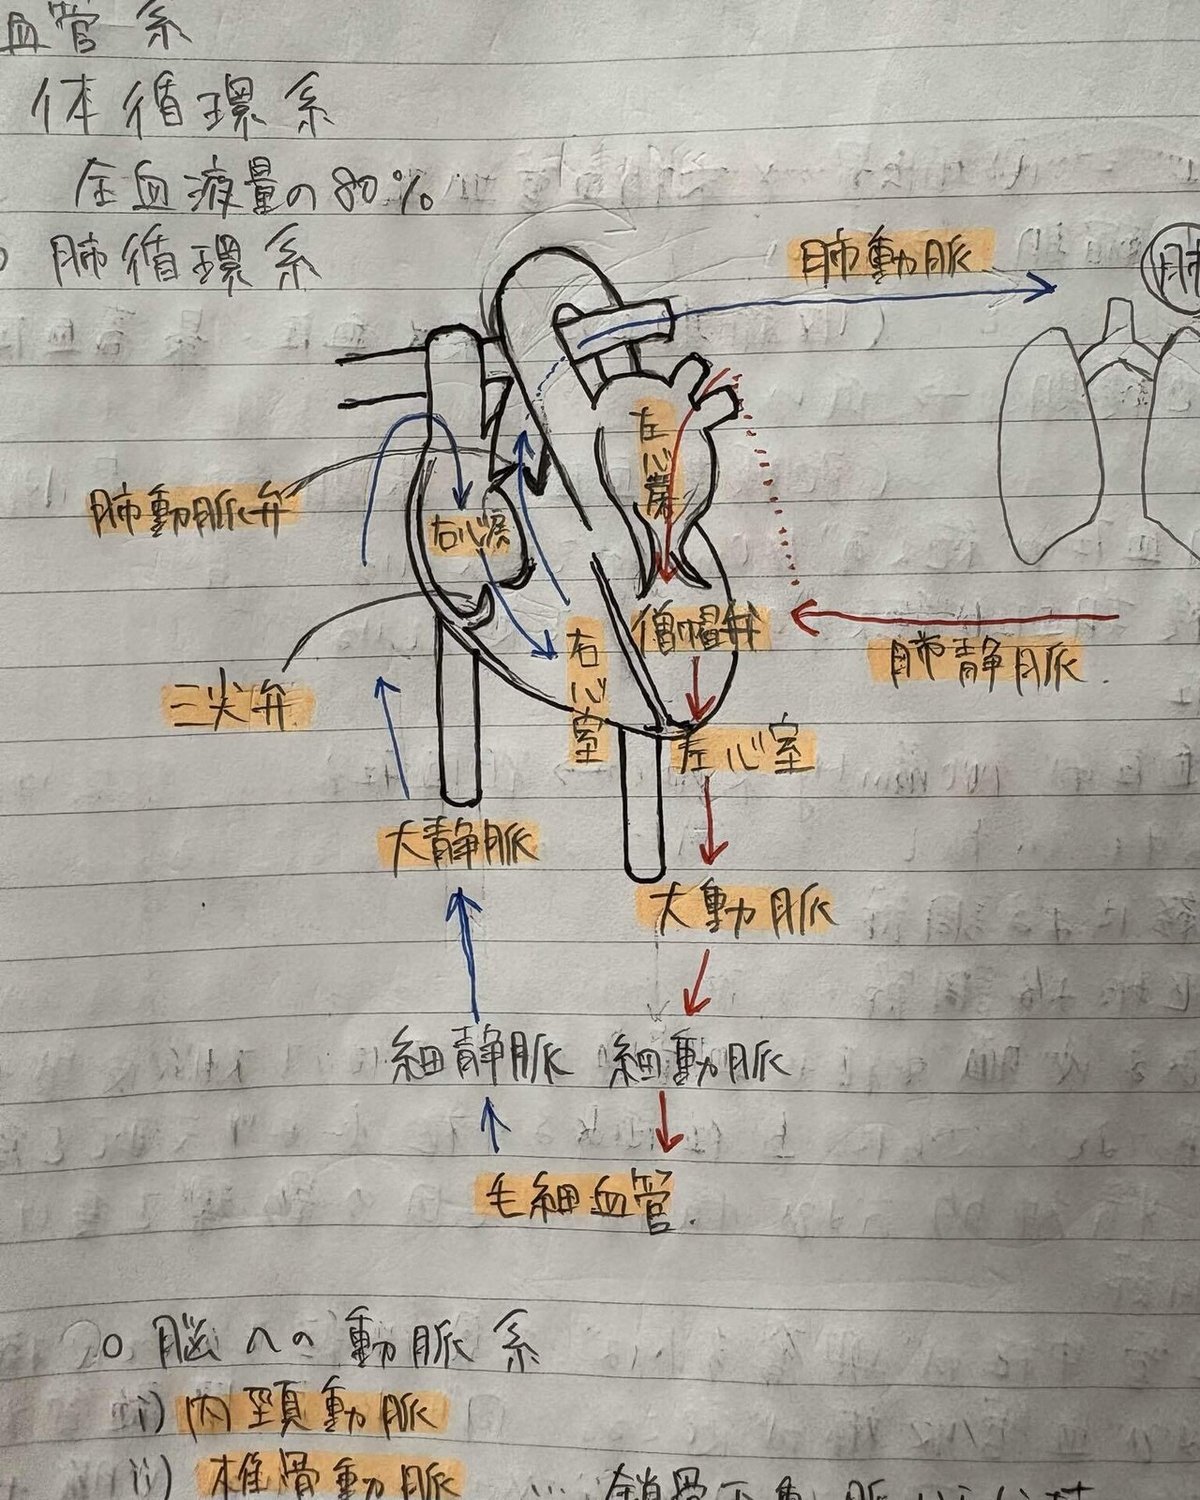 血管系
体循環系
全血液量の80%
肺循環系
肺動脈
肺
左心房
肺動脈弁
右心房
僧帽弁
肺静脈
右心室
三尖弁
左心室
大静脈
大動脈
細静脈 細動脈
毛細血管
○脳への動脈系
i) 内頚動脈
ii) 椎骨動脈 … 鎖骨下動脈